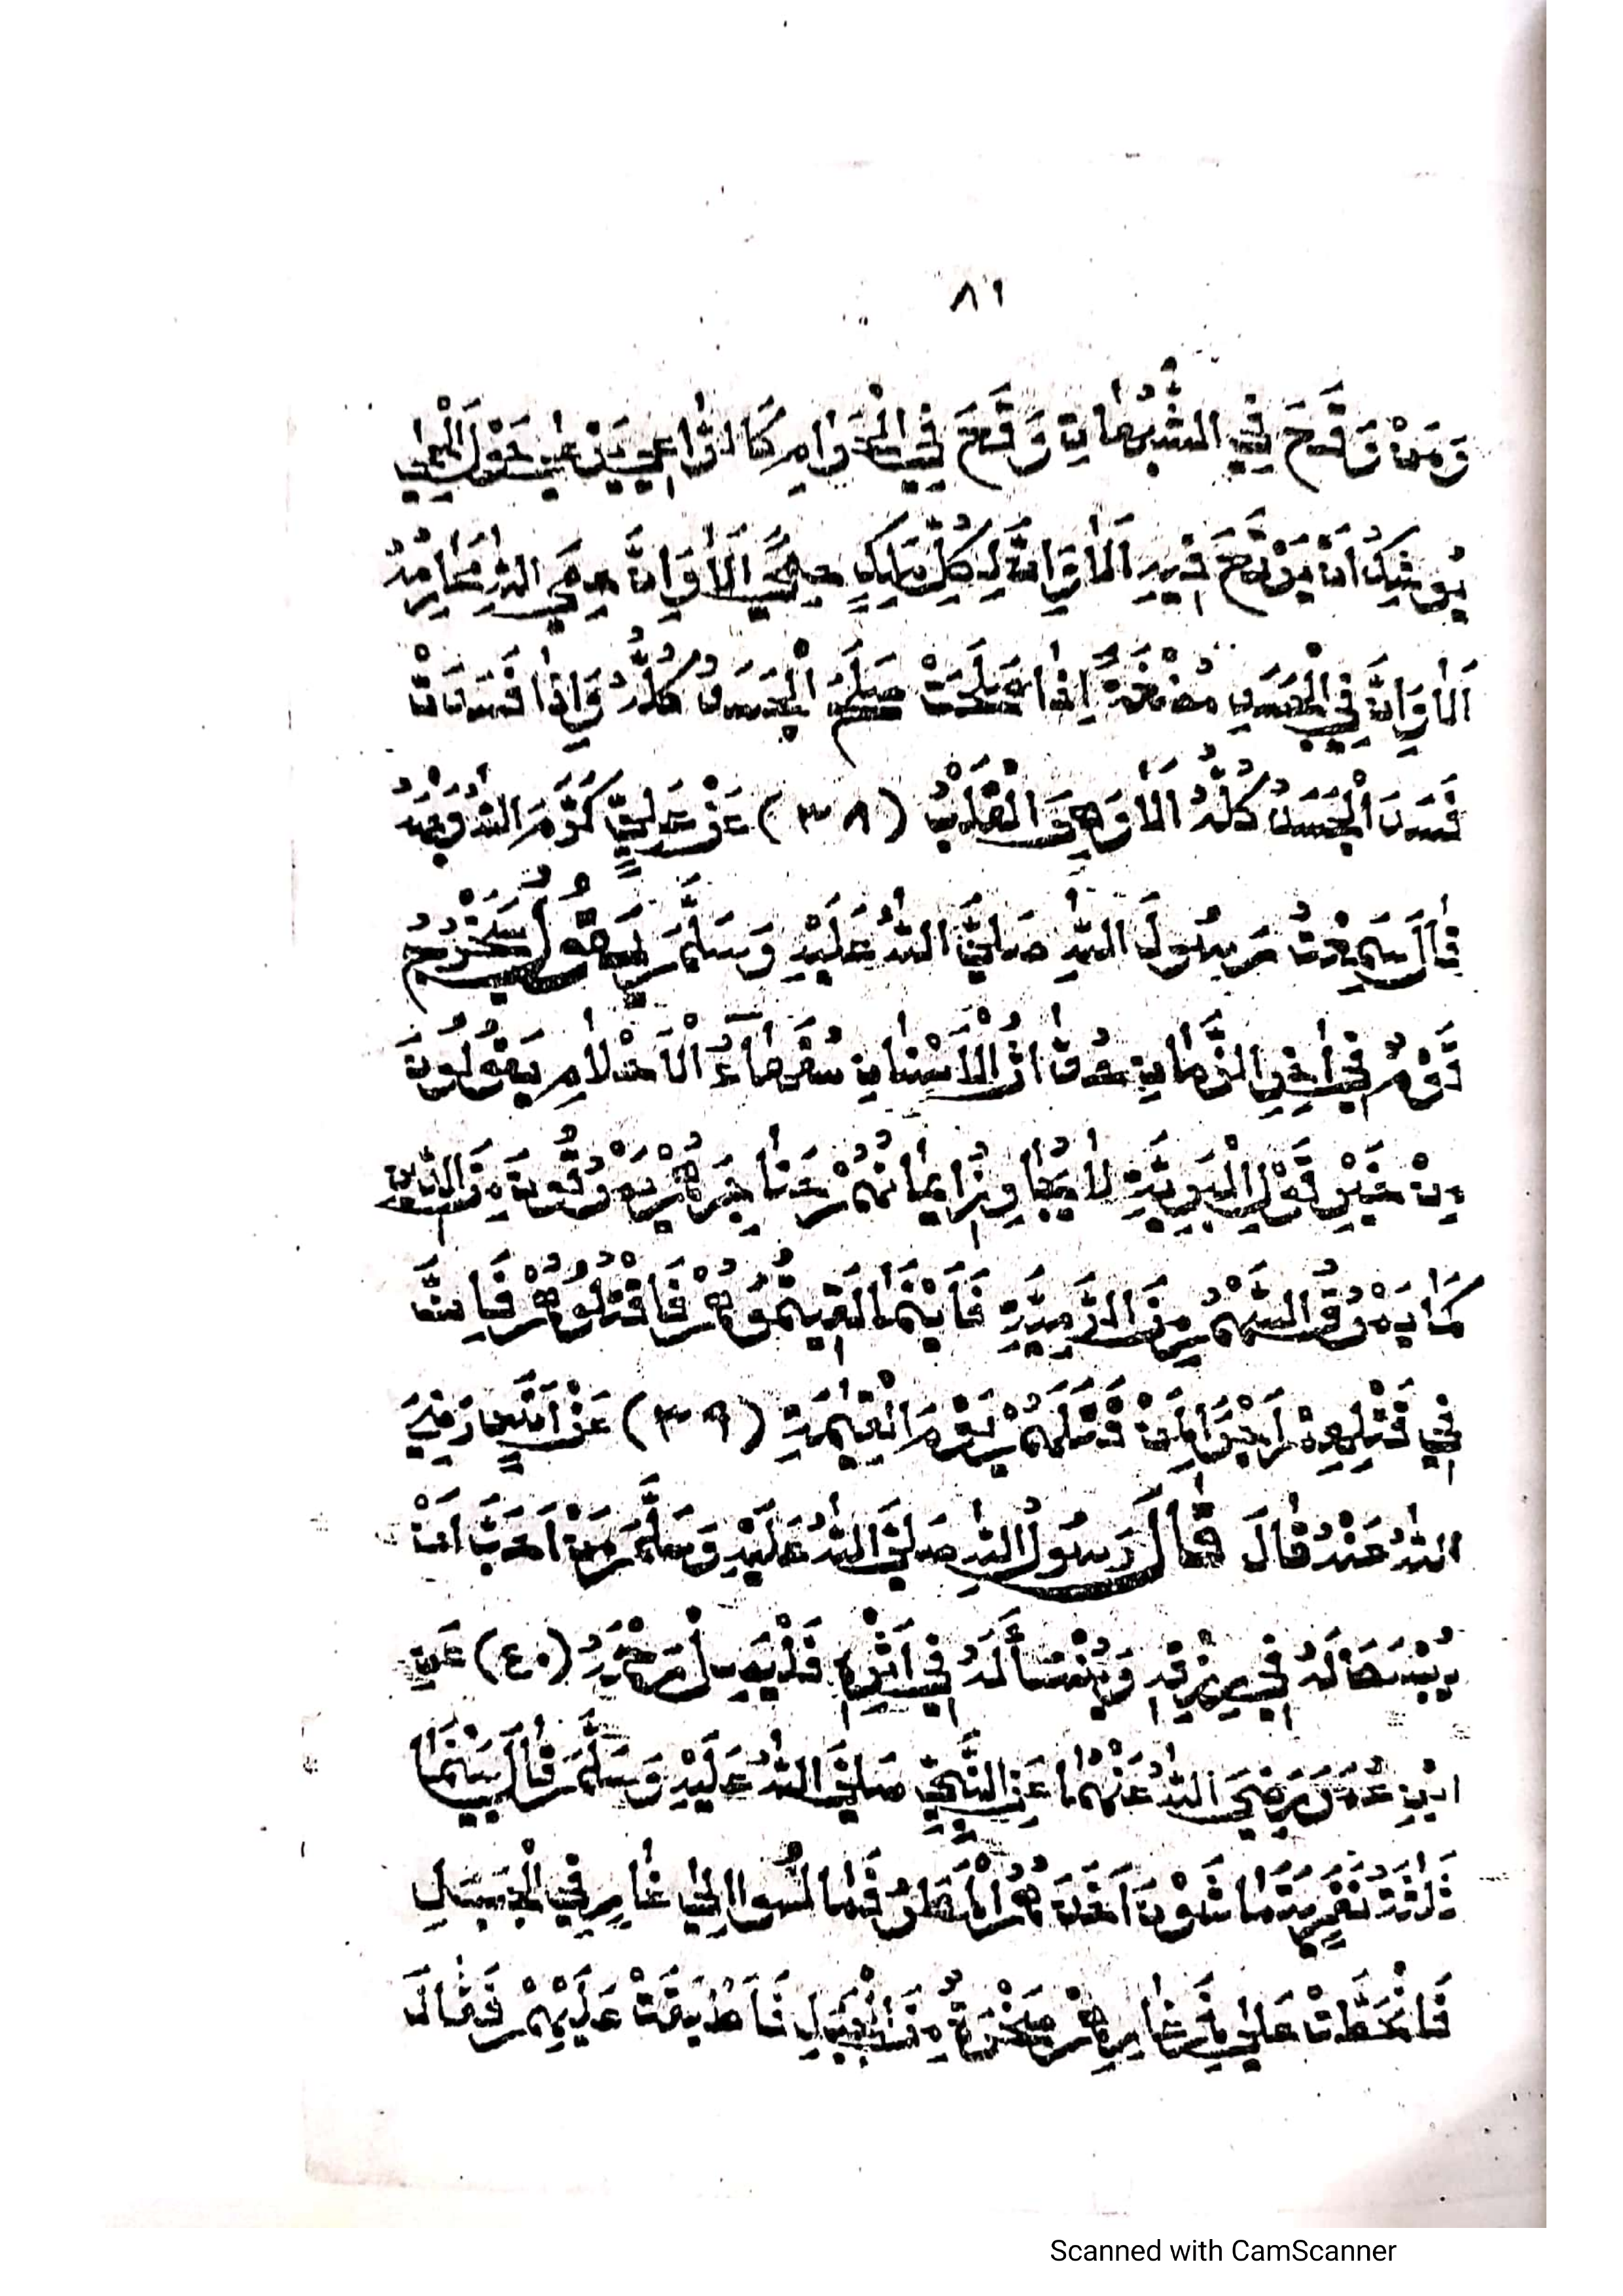 ٨١
وَمَنْ وَقَعَ فِي الشُّبُهَاتِ وَقَعَ فِي الْحَرَامِ كَالرَّاعِي يَرْعٰى حَوْلَ الْحِمٰى
يُوشِكُ اَنْ يَرْتَعَ فِيهِ اَلَا وَاِنَّ لِكُلِّ مَلِكٍ حِمًى اَلَا وَاِنَّ حِمَى اللّٰهِ مَحَارِمُهُ
اَلَا وَاِنَّ فِي الْجَسَدِ مُضْغَةً اِذَا صَلَحَتْ صَلَحَ الْجَسَدُ كُلُّهُ وَاِذَا فَسَدَتْ
فَسَدَ الْجَسَدُ كُلُّهُ اَلَا وَهِيَ الْقَلْبُ (٣٨) عَنْ عَلِيٍّ كَرَّمَ اللّٰهُ وَجْهَهُ
قَالَ سَمِعْتُ رَسُولَ اللّٰهِ صَلَّى اللّٰهُ عَلَيْهِ وَسَلَّمَ يَقُولُ سَيَخْرُجُ
قَوْمٌ فِي اٰخِرِ الزَّمَانِ حُدَّاثُ الْاَسْنَانِ سُفَهَاءُ الْاَحْلَامِ يَقُولُونَ
مِنْ خَيْرِ قَوْلِ الْبَرِيَّةِ لَا يُجَاوِزُ اِيمَانُهُمْ حَنَاجِرَهُمْ يَمْرُقُونَ مِنَ الدِّينِ
كَمَا يَمْرُقُ السَّهْمُ مِنَ الرَّمِيَّةِ فَاَيْنَمَا لَقِيتُمُوهُمْ فَاقْتُلُوهُمْ فَاِنَّ
فِي قَتْلِهِمْ اَجْرًا لِمَنْ قَتَلَهُمْ يَوْمَ الْقِيٰمَةِ (٣٩) عَنْ اَنَسٍ رَضِيَ
اللّٰهُ عَنْهُ قَالَ قَالَ رَسُولُ اللّٰهِ صَلَّى اللّٰهُ عَلَيْهِ وَسَلَّمَ مَنْ اَحَبَّ اَنْ
يُبْسَطَ لَهُ فِي رِزْقِهِ وَيُنْسَأَ لَهُ فِي اَثَرِهِ فَلْيَصِلْ رَحِمَهُ (٤٠) عَنِ
ابْنِ عُمَرَ رَضِيَ اللّٰهُ عَنْهُمَا عَنِ النَّبِيِّ صَلَّى اللّٰهُ عَلَيْهِ وَسَلَّمَ قَالَ بَيْنَمَا
ثَلٰثَةُ نَفَرٍ يَتَمَاشَوْنَ اَخَذَهُمُ الْمَطَرُ فَمَالُوا اِلٰى غَارٍ فِي الْجَبَلِ
فَانْحَطَّتْ عَلٰى فَمِ غَارِهِمْ صَخْرَةٌ مِنَ الْجَبَلِ فَاَطْبَقَتْ عَلَيْهِمْ فَقَالَ
Scanned with CamScanner